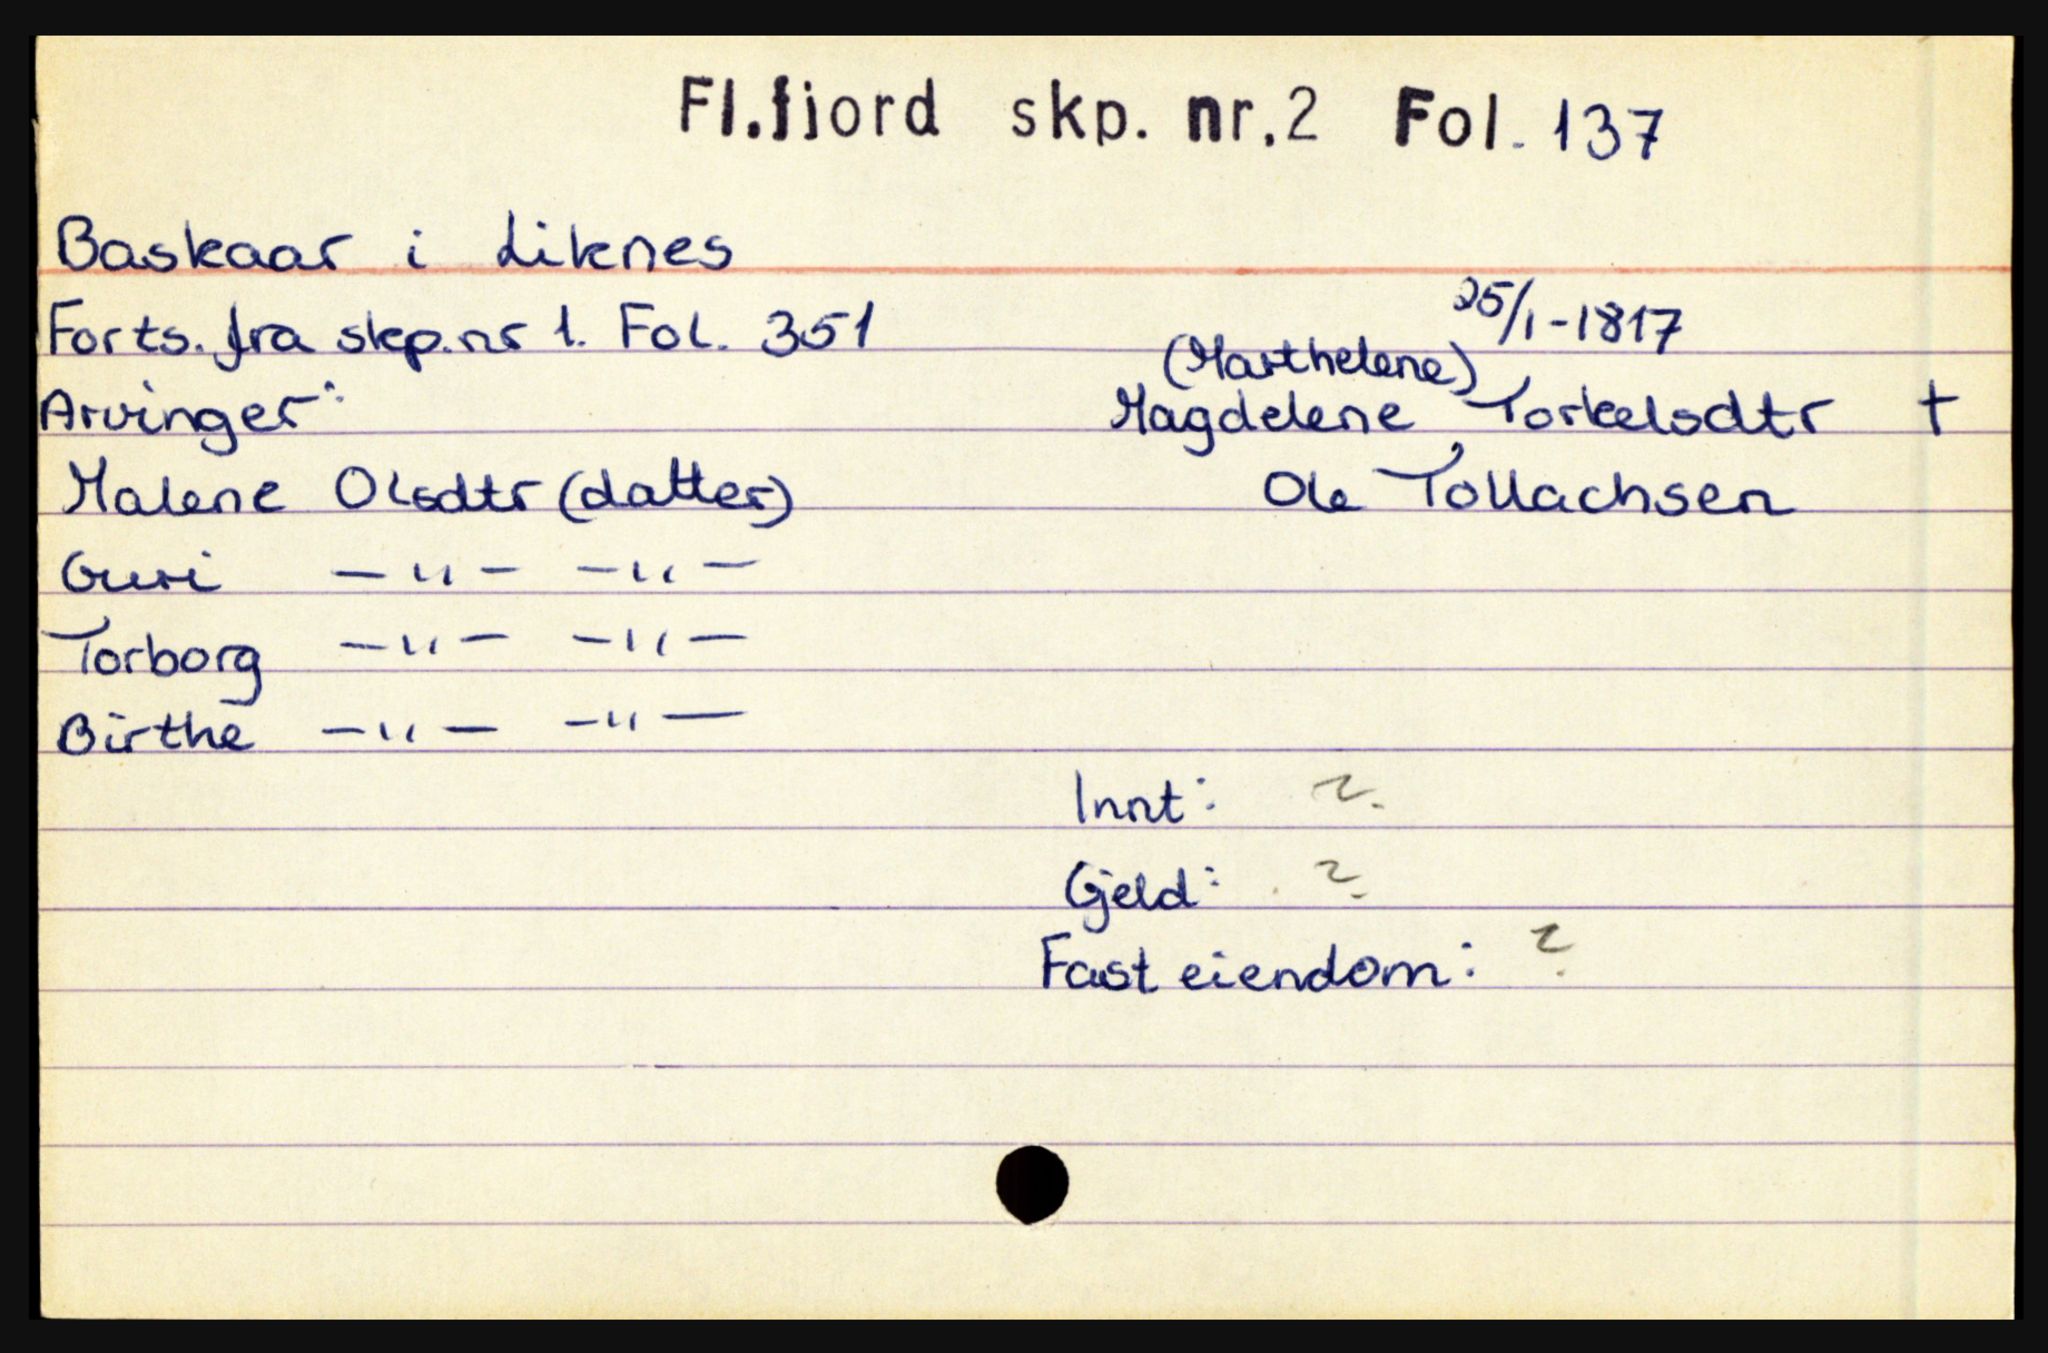 Fl.fjord skp. nr.2 Fol. 137
Baskaar i Liknes
Forts. fra skp.nr 1. Fol. 351
25/1-1817
(Marthelene)
Arvinger:
Magdelene Torkelsdtr †
Malene Olsdtr (datter)
Ole Tollachsen
Guri —"— —"—
Torborg —"— —"—
Birthe —"— —"—
Innt: ?
Gjeld: ?
Fast eiendom: ?